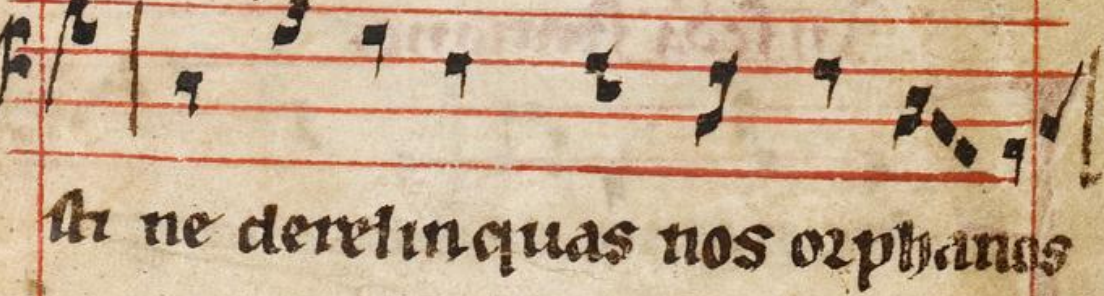 sti ne derelinquas nos orphanos